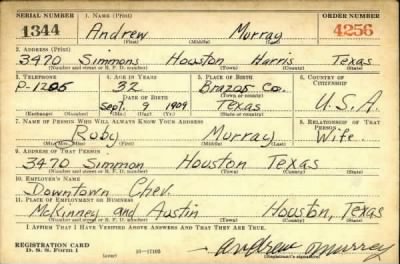 SERIAL NUMBER 1. NAME (Print) ORDER NUMBER
1344 Andrew Murray 4256
(First) (Middle) (Last)
2. ADDRESS (Print)
3470 Simmons Houston Harris Texas
(Number and street or R. F. D. number) (Town) (County) (State)
3. TELEPHONE 4. AGE IN YEARS 5. PLACE OF BIRTH 6. COUNTRY OF CITIZENSHIP
P-1205 32 Brazos Co.
DATE OF BIRTH (Town or county)
Sept. 9 1909 Texas U.S.A.
(Exchange) (Number) (Mo.) (Day) (Yr.) (State or country)
7. NAME OF PERSON WHO WILL ALWAYS KNOW YOUR ADDRESS 8. RELATIONSHIP OF THAT PERSON
Ruby Murray Wife
(Mr., Mrs., Miss) (First) (Middle) (Last)
9. ADDRESS OF THAT PERSON
3470 Simmon Houston Texas
(Number and street or R. F. D. number) (Town) (County) (State)
10. EMPLOYER'S NAME
Downtown Chev.
11. PLACE OF EMPLOYMENT OR BUSINESS
McKinney and Austin Houston, Texas
(Number and street or R. F. D. number) (Town) (County) (State)
I AFFIRM THAT I HAVE VERIFIED ABOVE ANSWERS AND THAT THEY ARE TRUE.
REGISTRATION CARD
D. S. S. Form 1 (over) Andrew Murray
(Registrant's signature)